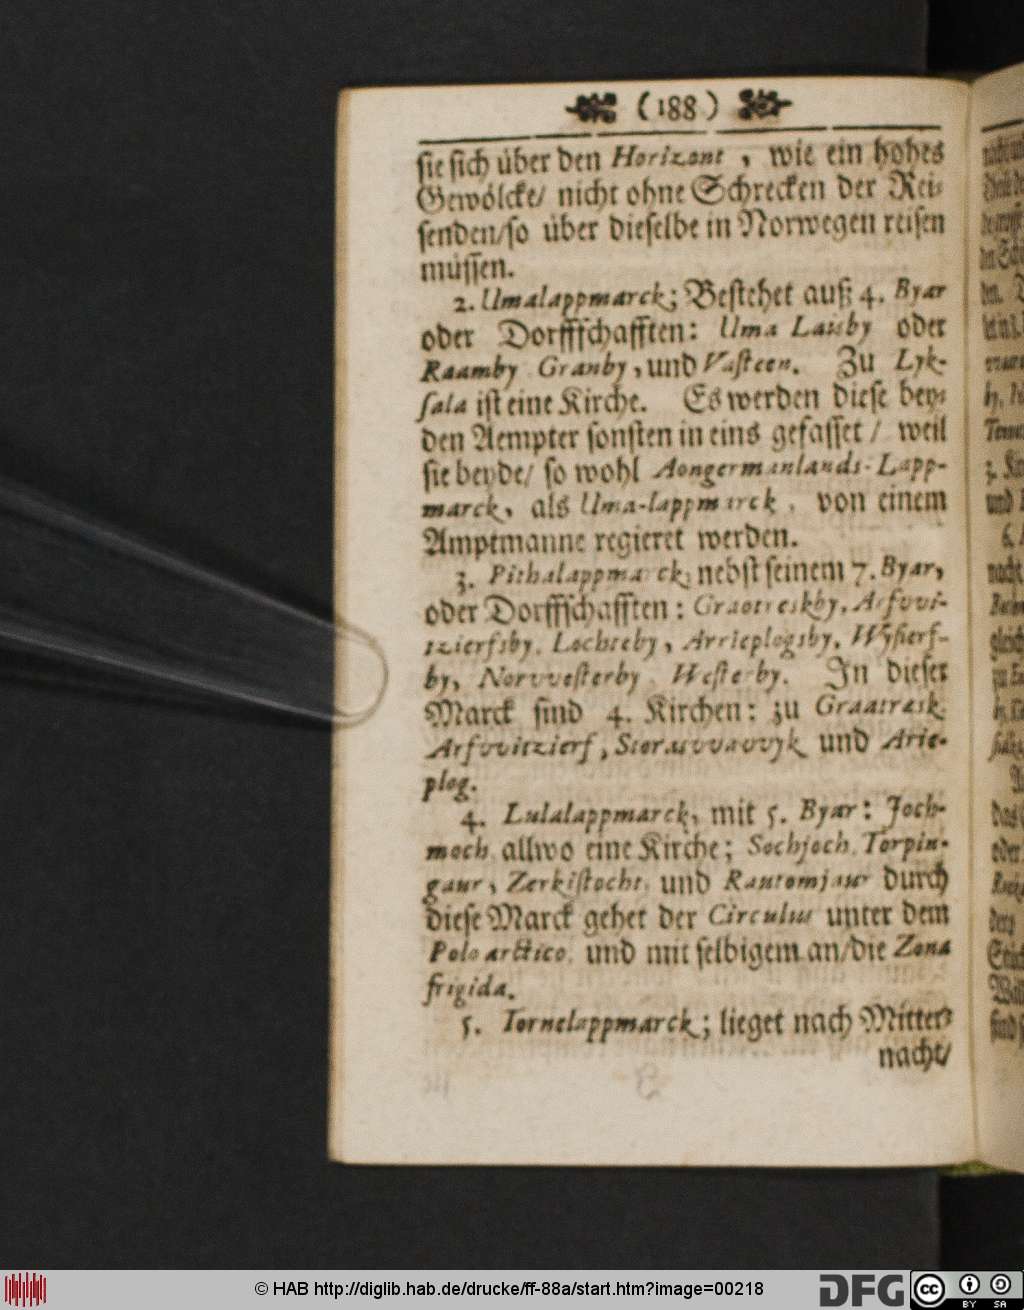 (188)
sie sich über den Horizont, wie ein hohes
Gewölcke/ nicht ohne Schrecken der Rei-
senden/so über dieselbe in Norwegen reisen
müssen.
2. Umalappmarck; Bestehet auß 4. Byar
oder Dorffschafften: Uma Laisby oder
Raamby Granby, und Vasteen. Zu Lyk-
sala ist eine Kirche. Es werden diese bey-
den Aempter sonsten in eins gefasset / weil
sie beyde/ so wohl Aongermanlands-Lapp-
marck, als Uma-lappmarck, von einem
Amptmanne regieret werden.
3. Pithalappmarck, nebst seinem 7. Byar,
oder Dorffschafften: Graotreskby, Arfvvi-
tzierfsby, Lochteby, Arrieplogsby, Wysierf-
by, Norvvesterby Westerby. In dieser
Marck sind 4. Kirchen: zu Graatræsk
Arfvvitzierf, Storasvvavvyk und Arie-
plog.
4. Lulalappmarck, mit 5. Byar: Joch-
moch, allwo eine Kirche; Sochjoch, Torpin-
gaur, Zerkistocht, und Rautomjaur durch
diese Marck gehet der Circulus unter dem
Polo arctico, und mit selbigem an/die Zona
frigida.
5. Tornelappmarck; lieget nach Mitter-
nacht/
© HAB http://diglib.hab.de/drucke/ff-88a/start.htm?image=00218
DFG
cc BY SA